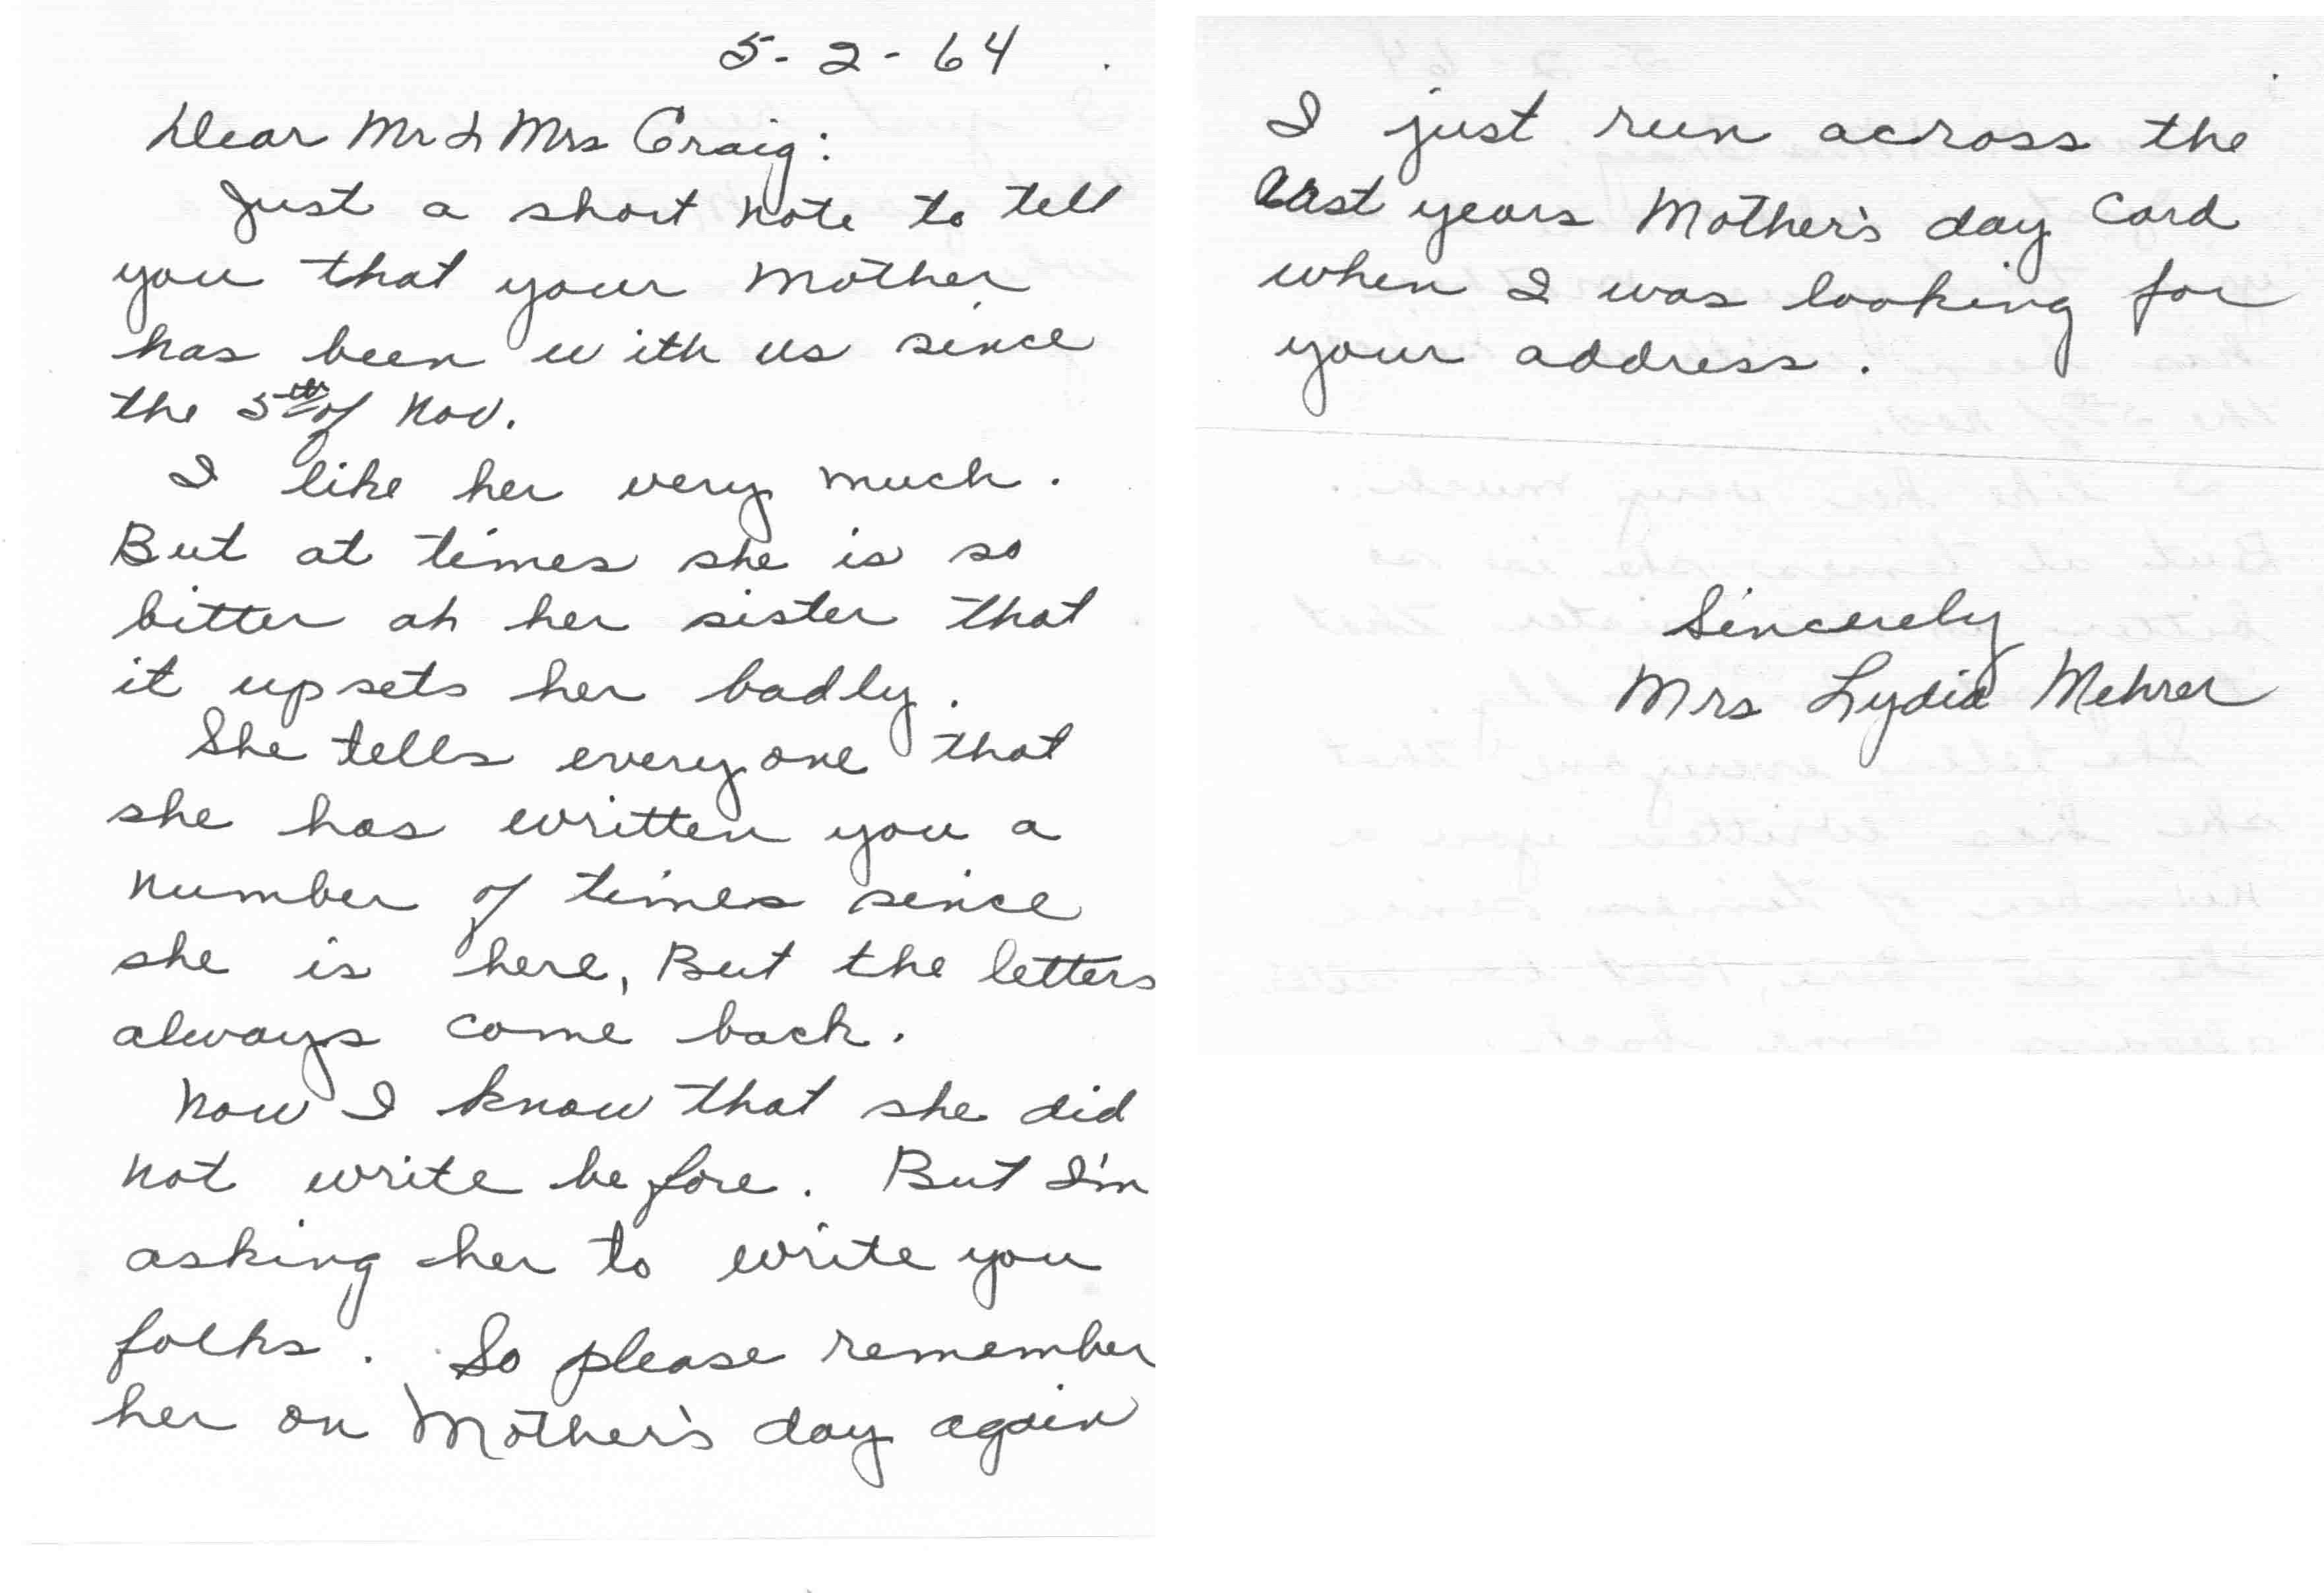 5-2-64
Dear Mr & Mrs Craig:
Just a short note to tell
you that your mother
has been with us since
the 5th of Nov.
I like her very much.
But at times she is so
bitter at her sister that
it upsets her badly.
She tells everyone that
she has written you a
number of times since
she is here, But the letters
always come back.
Now I know that she did
not write before. But I'm
asking her to write you
folks. So please remember
her on Mother's day again
I just run across the
last years Mother's day card
when I was looking for
your address.
Sincerely
Mrs Lydia Mehrer